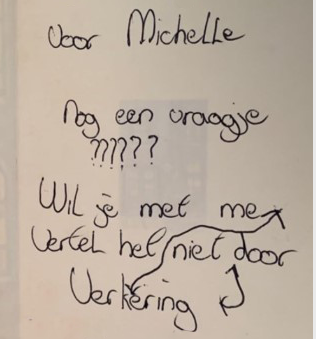 Voor Michelle
Nog een vraagje
??????
Wil je met me
Vertel het niet door
Verkering